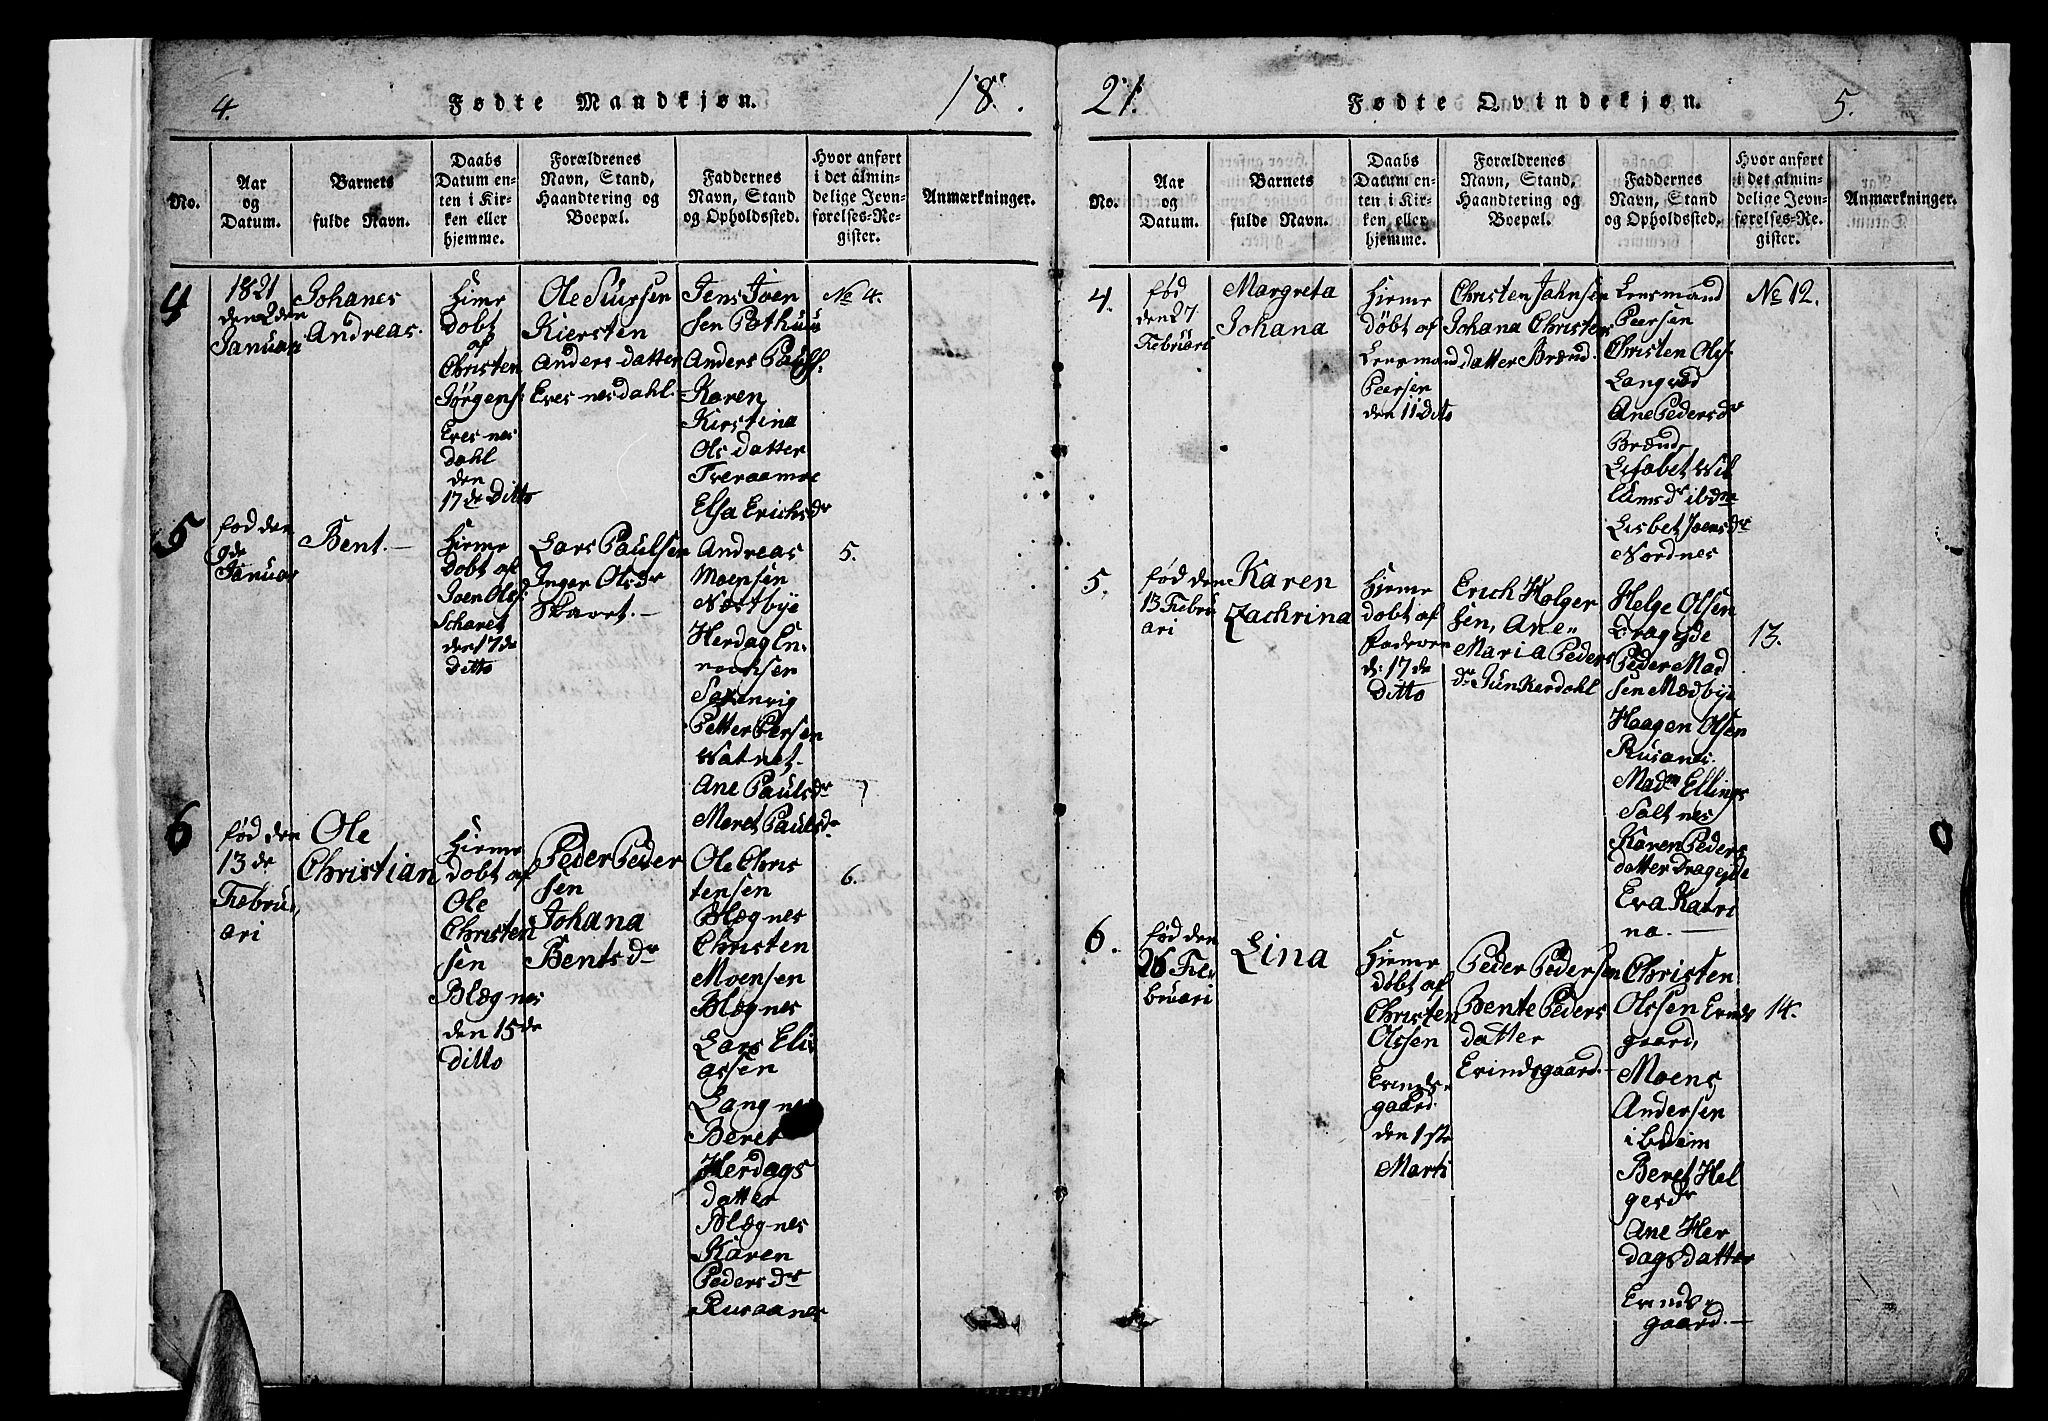 4.
Fødte Mandkjøn.
18
No.
Aar
og
Datum.
Barnets
fulde Navn.
Daabs
Datum en-
ten i Kir-
ken eller
hjemme.
Forældrenes
Navn, Stand,
Haandtering og
Boepæl.
Faddernes
Navn, Stand
og Opholdssted.
Hvor anført
i det almin-
delige Jevn-
førelses-Re-
gister.
Anmærkninger.
4
1821
den 2den
Januari
Johanes
Andreas.
Hieme
dobt
af
Christen
Jørgens:
Eves nes
dahl
den
17de Ditto
Ole Siursen
Kiersten
Anders datter
Eves nesdahl.
Jens Joen
sen Pothuus
Anders Pauls.
Karen
Kirstina
Ols datter
Tveraamoe
Elsa Erichsdr
No 4.
5
fød den
9de
Januar
Bent.
Hieme
dobt af
Joen Ols:
Scharet
den 17de
Ditto
Lars Paulsen
Inger Olsdr
Skaret.
Andreas
Moensen
Næstbye
Herdag En-
Saxenvig
Petter Persen
Watnet.
Ane Paulsdr
Meret Paulsdr
5.
6
fød den
13de
Februi
ari
Ole
Christian
Hieme
dobt af
Ole
Christen
sen
Blægnes
den 15de
Ditto
Peder Peder
sen
Johana
Bentsdr
Ole Chris
tensen
Blægnes
Christen
Moensen
Blægnes
Lars Eli
assen
Langnes
Beret
Herdags
datter
Blægnes
Karen
Pedersdr
Rusaanes
6.
21.
Fødte Qvindekjøn.
5.
No.
Aar
og
Datum.
Barnets
fulde Navn.
Daabs
Datum en-
ten i Kir-
ken eller
hjemme.
Forældrenes
Navn, Stand,
Haandtering og
Boepæl.
Faddernes
Navn, Stand
og Opholdssted.
Hvor anført
i det almin-
delige Jevn-
førelses-Re-
gister.
Anmærkninger.
4.
fød
den 27
Februari
Margreta
Johana
Hieme
døbt af
Lensmand
Peersen
den 11 Dito
Christen Jahnsen
Johana Christens
datter Brænd.
Lensmand
Peersen
Christen Ols.
Langvad
Ane Pedersdr
Brænd
Lisabet Wil
lumsdr ibdm
Lisbet Joensdr
Nordnes
No 12.
5.
fød den
13 Febru
ari
Karen
Zachrina
Hieme
dobt af
Faderen
d: 17de
Ditto
Erich Holger
sen, Ane
Maria Peders
dr Junkerdahl
Helge Olsen
Drageide
Peder Mad
sen Medbye
Haagen Olsen
Rusanes.
Madm Ellings
Saltnes
Karen Peders
datter Drageide
Eva Katri
na.
13.
6.
fød den
26 Fe
bruari
Lina
Hieme
døbt af
Christen
Olssen
Evends-
gaard.
den 1ste
Marti
Peder Pedersen
Bente Peders
datter
Evindsgaard.
Christen
Olssen Evends
gaard,
Moens
Andersen
ibdem
Beret Hel
gesdr
Ane Her
dagsdatter
Evends
gaard.
14.